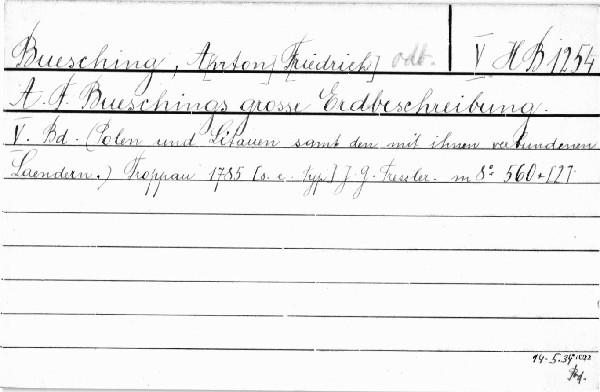 Buesching, A[nton] F[riedrich] odb. V H B 1254
A. F. Bueschings grosse Erdbeschreibung.
V. Bd. (Polen und Litauen samt den mit ihnen verbundenen
Laendern.) Troppau 1785 [s. c. typ.] J. G. Trassler. m 8° 560+[2].
14-5.34